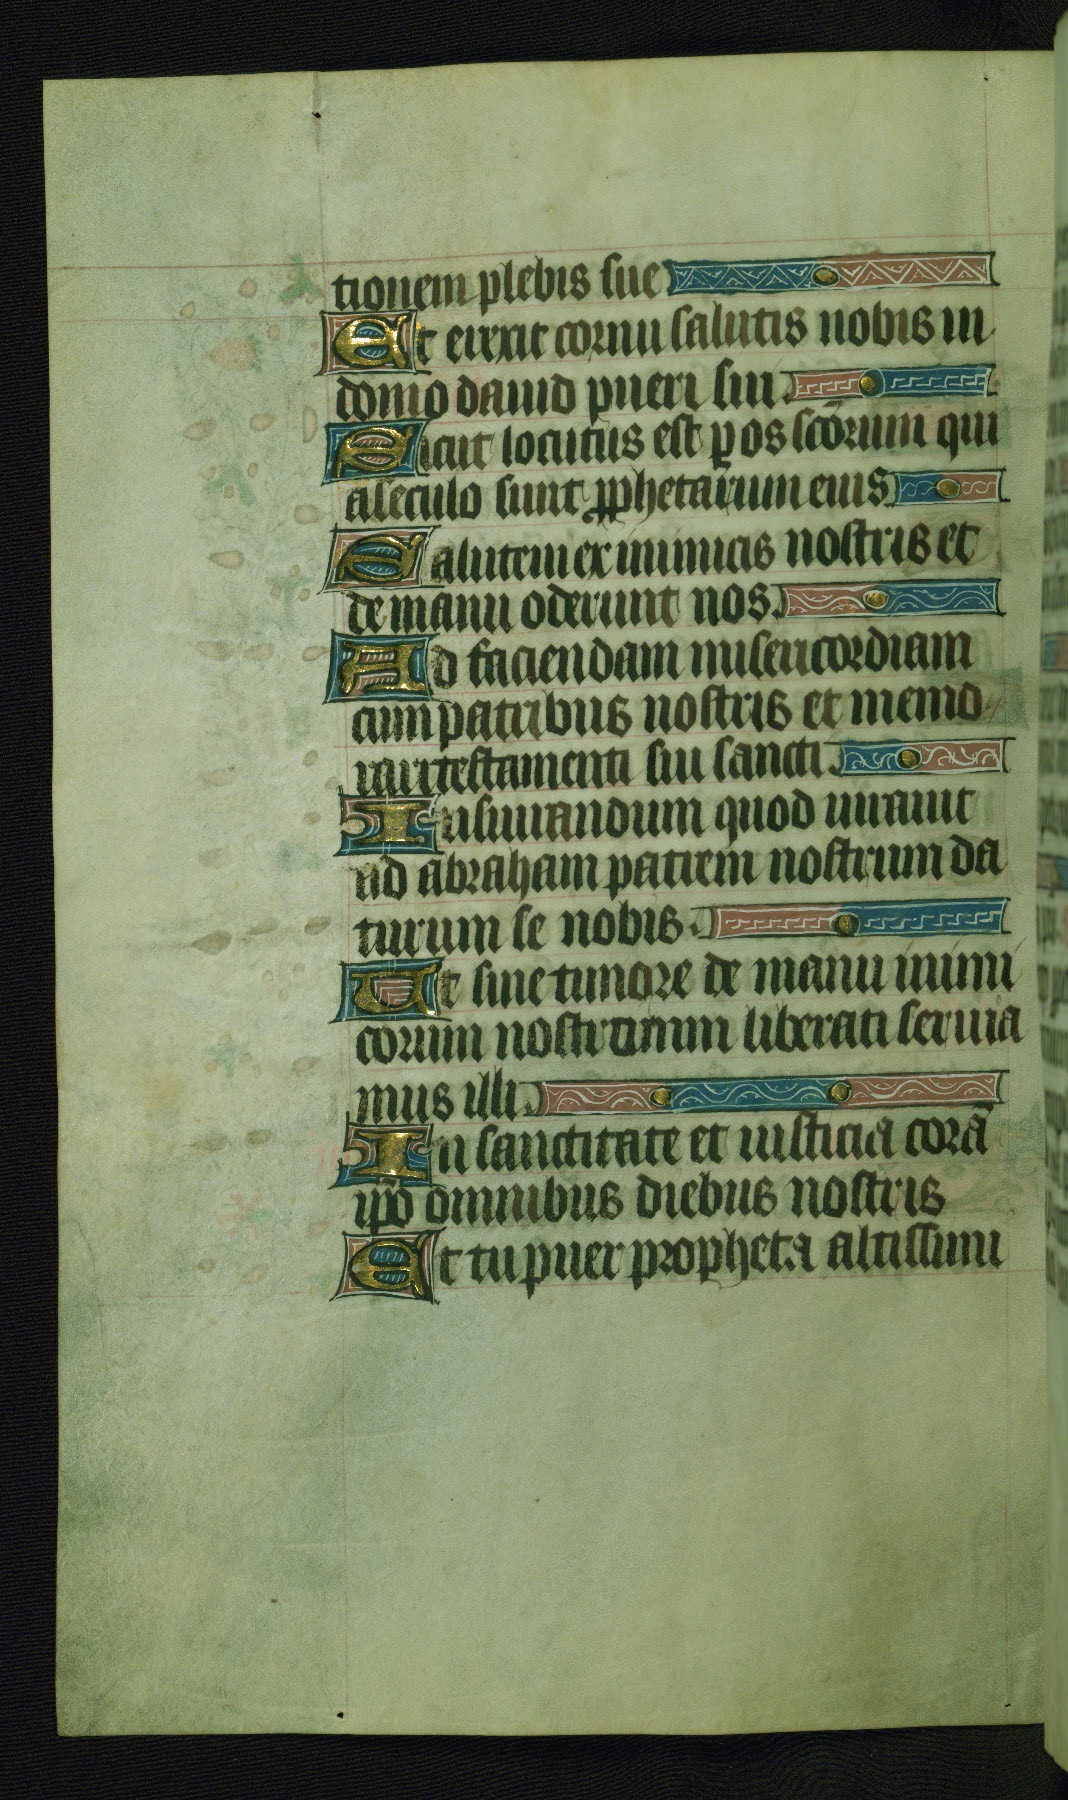 tionem plebis sue
Et erexit cornu salutis nobis in
domo dauid pueri sui
Sicut locutus est ꝑ os sc̄orum qui
a seculo sunt ꝓphetarum eius
Salutem ex inimicis nostris et
de manu oderunt nos
Ad faciendam misericordiam
cum patribus nostris et memo
rari testamenti sui sancti
Iusiurandum quod iurauit
ad abraham patrem nostrum da
turum se nobis
Ut sine timore de manu inimi
corum nostrorum liberati seruia
mus illi
In sanctitate et iusticia corā
ip̄o omnibus diebus nostris
Et tu puer propheta altissimi